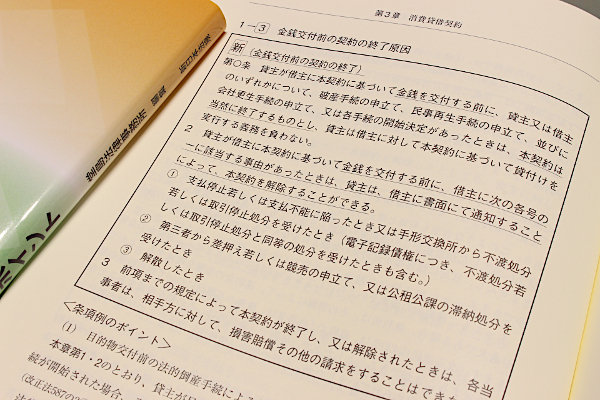 第3章 消費貸借契約
1-3 金銭交付前の契約の終了原因
新 (金銭交付前の契約の終了)
第○条 貸主が借主に本契約に基づいて金銭を交付する前に、貸主又は借主
のいずれかについて、破産手続の申立て、民事再生手続の申立て、並びに
会社更生手続の申立て、又は各手続の開始決定があったときは、本契約は
当然に終了するものとし、貸主は借主に対して本契約に基づいて貸付けを
実行する義務を負わない。
2 貸主が借主に本契約に基づいて金銭を交付する前に、借主に次の各号の
一に該当する事由があったときは、貸主は、借主に書面にて通知すること
によって、本契約を解除することができる。
① 支払停止若しくは支払不能に陥ったとき又は手形交換所から不渡処分
若しくは取引停止処分を受けたとき(電子記録債権につき、不渡処分若
しくは取引停止処分と同等の処分を受けたときも含む。)
② 第三者から差押え若しくは競売の申立て、又は公租公課の滞納処分を
受けたとき
③ 解散したとき
3 前項までの規定によって本契約が終了し、又は解除されたときは、各当
事者は、相手方に対して、損害賠償その他の請求をすることはできな
<条項例のポイント>
(1) 目的物交付前の法的倒産手続による
本章第1・2のとおり、貸主が
続が開始された場合、
(改正法587の2
ポイント